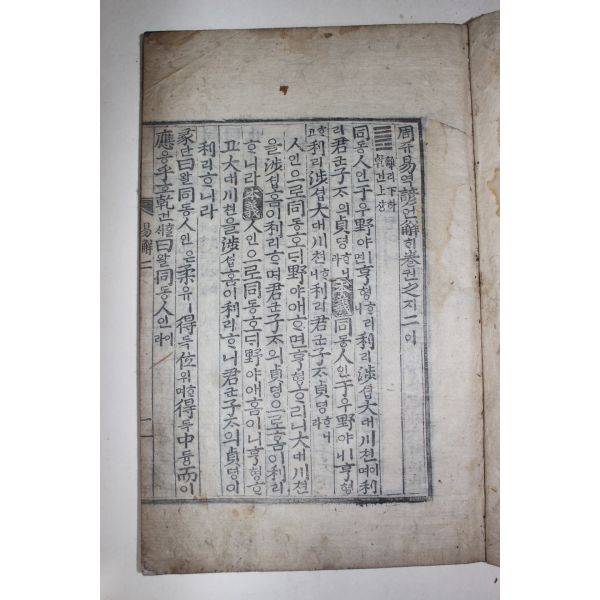 周쥬易역諺언解ᄒᆡ卷권之지二이
離리下하
乾건上샹
同동人인于우野야ㅣ면亨형ᄒᆞ리니利리涉셥大대川쳔이며利
리君군子ᄌᆞ의貞뎡ᄒᆞ니라本義同동人인于우野야ㅣ니亨형
ᄒᆞ고利리涉셥大대川쳔ᄒᆞ니利리君군子ᄌᆞ貞뎡ᄒᆞ니라
人인으로同동호ᄃᆡ野야애ᄒᆞ면亨형ᄒᆞ리니大대川쳔
을涉셥홈이利리ᄒᆞ며君군子ᄌᆞ의貞뎡으로홈이利리
ᄒᆞ니라本義人인으로同동호ᄃᆡ野야애홈이니亨형ᄒᆞ
고大대川쳔을涉셥홈이利리ᄒᆞ니君군子ᄌᆞ의貞뎡이
利리ᄒᆞ니라
彖단曰왈同동人인은柔유ㅣ得득位위ᄒᆞ며得득中듕而이
應응乎호乾건ᄒᆞᆯᄉᆡ曰왈同동人인이라
易解二